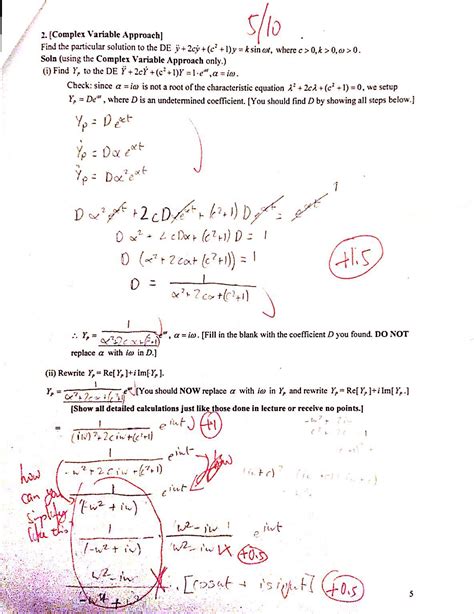 5/10
2. [Complex Variable Approach]
Find the particular solution to the DE ÿ + 2cẏ + (c² + 1)y = k sin ωt, where c > 0, k > 0, ω > 0.
Soln (using the Complex Variable Approach only.)
(i) Find Yₚ to the DE Ÿ + 2cẎ + (c² + 1)Y = 1·e^{αt}, α = iω.
Check: since α = iω is not a root of the characteristic equation λ² + 2cλ + (c² + 1) = 0, we setup
Yₚ = De^{αt}, where D is an undetermined coefficient. [You should find D by showing all steps below.]
Yₚ = D e^{αt}
Ẏₚ = Dα e^{αt}
Ÿₚ = Dα² e^{αt}
1
Dα² e^{αt} + 2cDα e^{αt} + (c²+1) D e^{αt} = e^{αt}
Dα² + 2cDα + (c²+1) D = 1
D (α² + 2cα + (c²+1)) = 1
+1.5
D = 1 / (α² + 2cα + (c²+1))
∴ Yₚ = 1 / (α² + 2cα + (c²+1)) e^{αt}, α = iω. [Fill in the blank with the coefficient D you found. DO NOT
replace α with iω in D.]
(ii) Rewrite Yₚ = Re[Yₚ] + i Im[Yₚ].
Yₚ = 1 / (α² + 2cα + (c²+1)) e^{αt} [You should NOW replace α with iω in Yₚ and rewrite Yₚ = Re[Yₚ] + i Im[Yₚ].]
[Show all detailed calculations just like those done in lecture or receive no points.]
= 1 / ((iω)² + 2ciω + (c²+1)) e^{iωt} +1
1 / (-ω² + 2ciω + (c²+1)) e^{iωt}
how can you simplify like this
1 / (-ω² + iω) e^{iωt}
1 / (-ω² + iω) · ω² - iω / ω² - iω e^{iωt} +0.5
ω² - iω / -ω⁴ + · [cos ωt + i sin ωt] +0.5
5